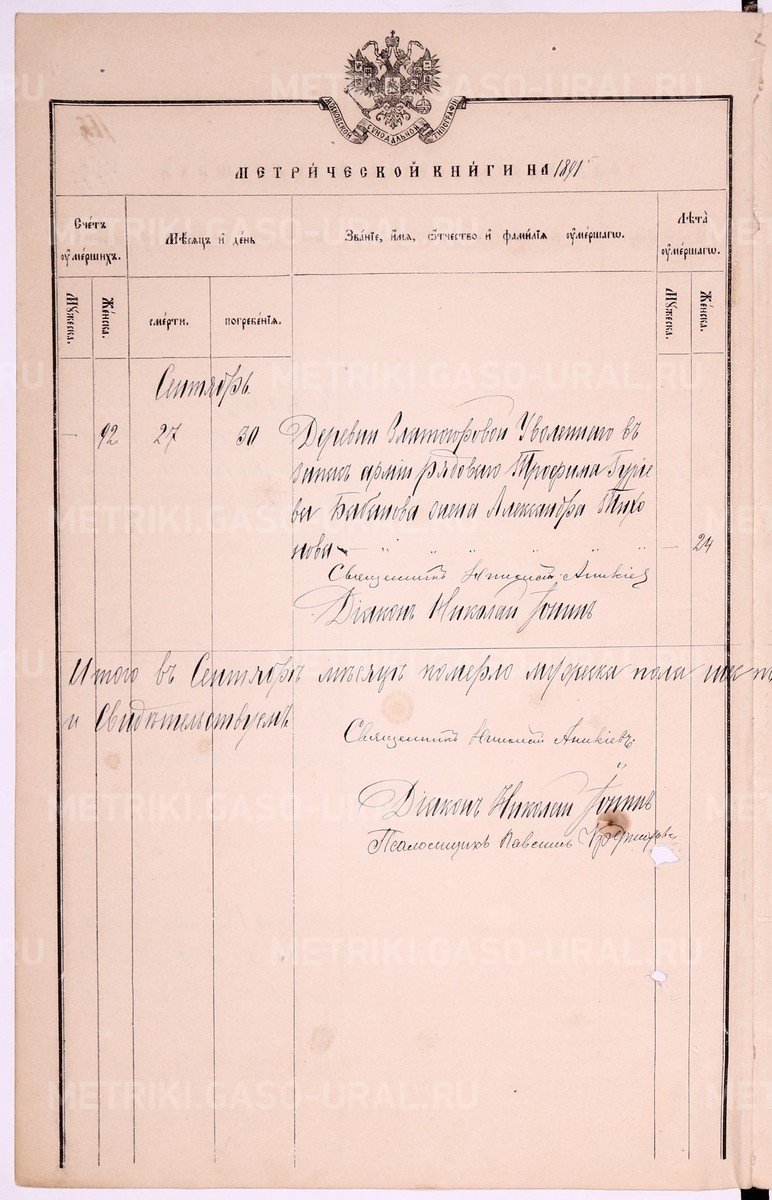 МОСКОВСКОЙ СѴНОДАЛЬНОЙ ТИПОГРАФІИ
МЕТРИ́ЧЕСКОЙ КНИ́ГИ НА 1891
Счетъ ᲂумершихъ.
Мѣсяцъ и день
Званіе, имя, ѿчество и фамилія ᲂумершагѡ.
Лѣта ᲂумершагѡ.
Мꙋжеска.
Женска.
смерти.
погребенія.
Мꙋжеска.
Женска.
Сентябрь
— 92 27 30 Деревни Златогоровой Уволеннаго въ
запасъ арміи рядоваго Трофима Гуріе
ва Бабинова жена Александра Тихо
нова — " " " " " " — 24
Священникъ Николай Аникіев
Діаконъ Николай Іонинъ
Итого въ Сентябрѣ мѣсяцѣ померло мужеска пола
и Свидѣтельствуемъ
Священникъ Николай Аникіевъ
Діаконъ Николай Іонинъ
Псаломщикъ
METRIKI.GASO-URAL.RU